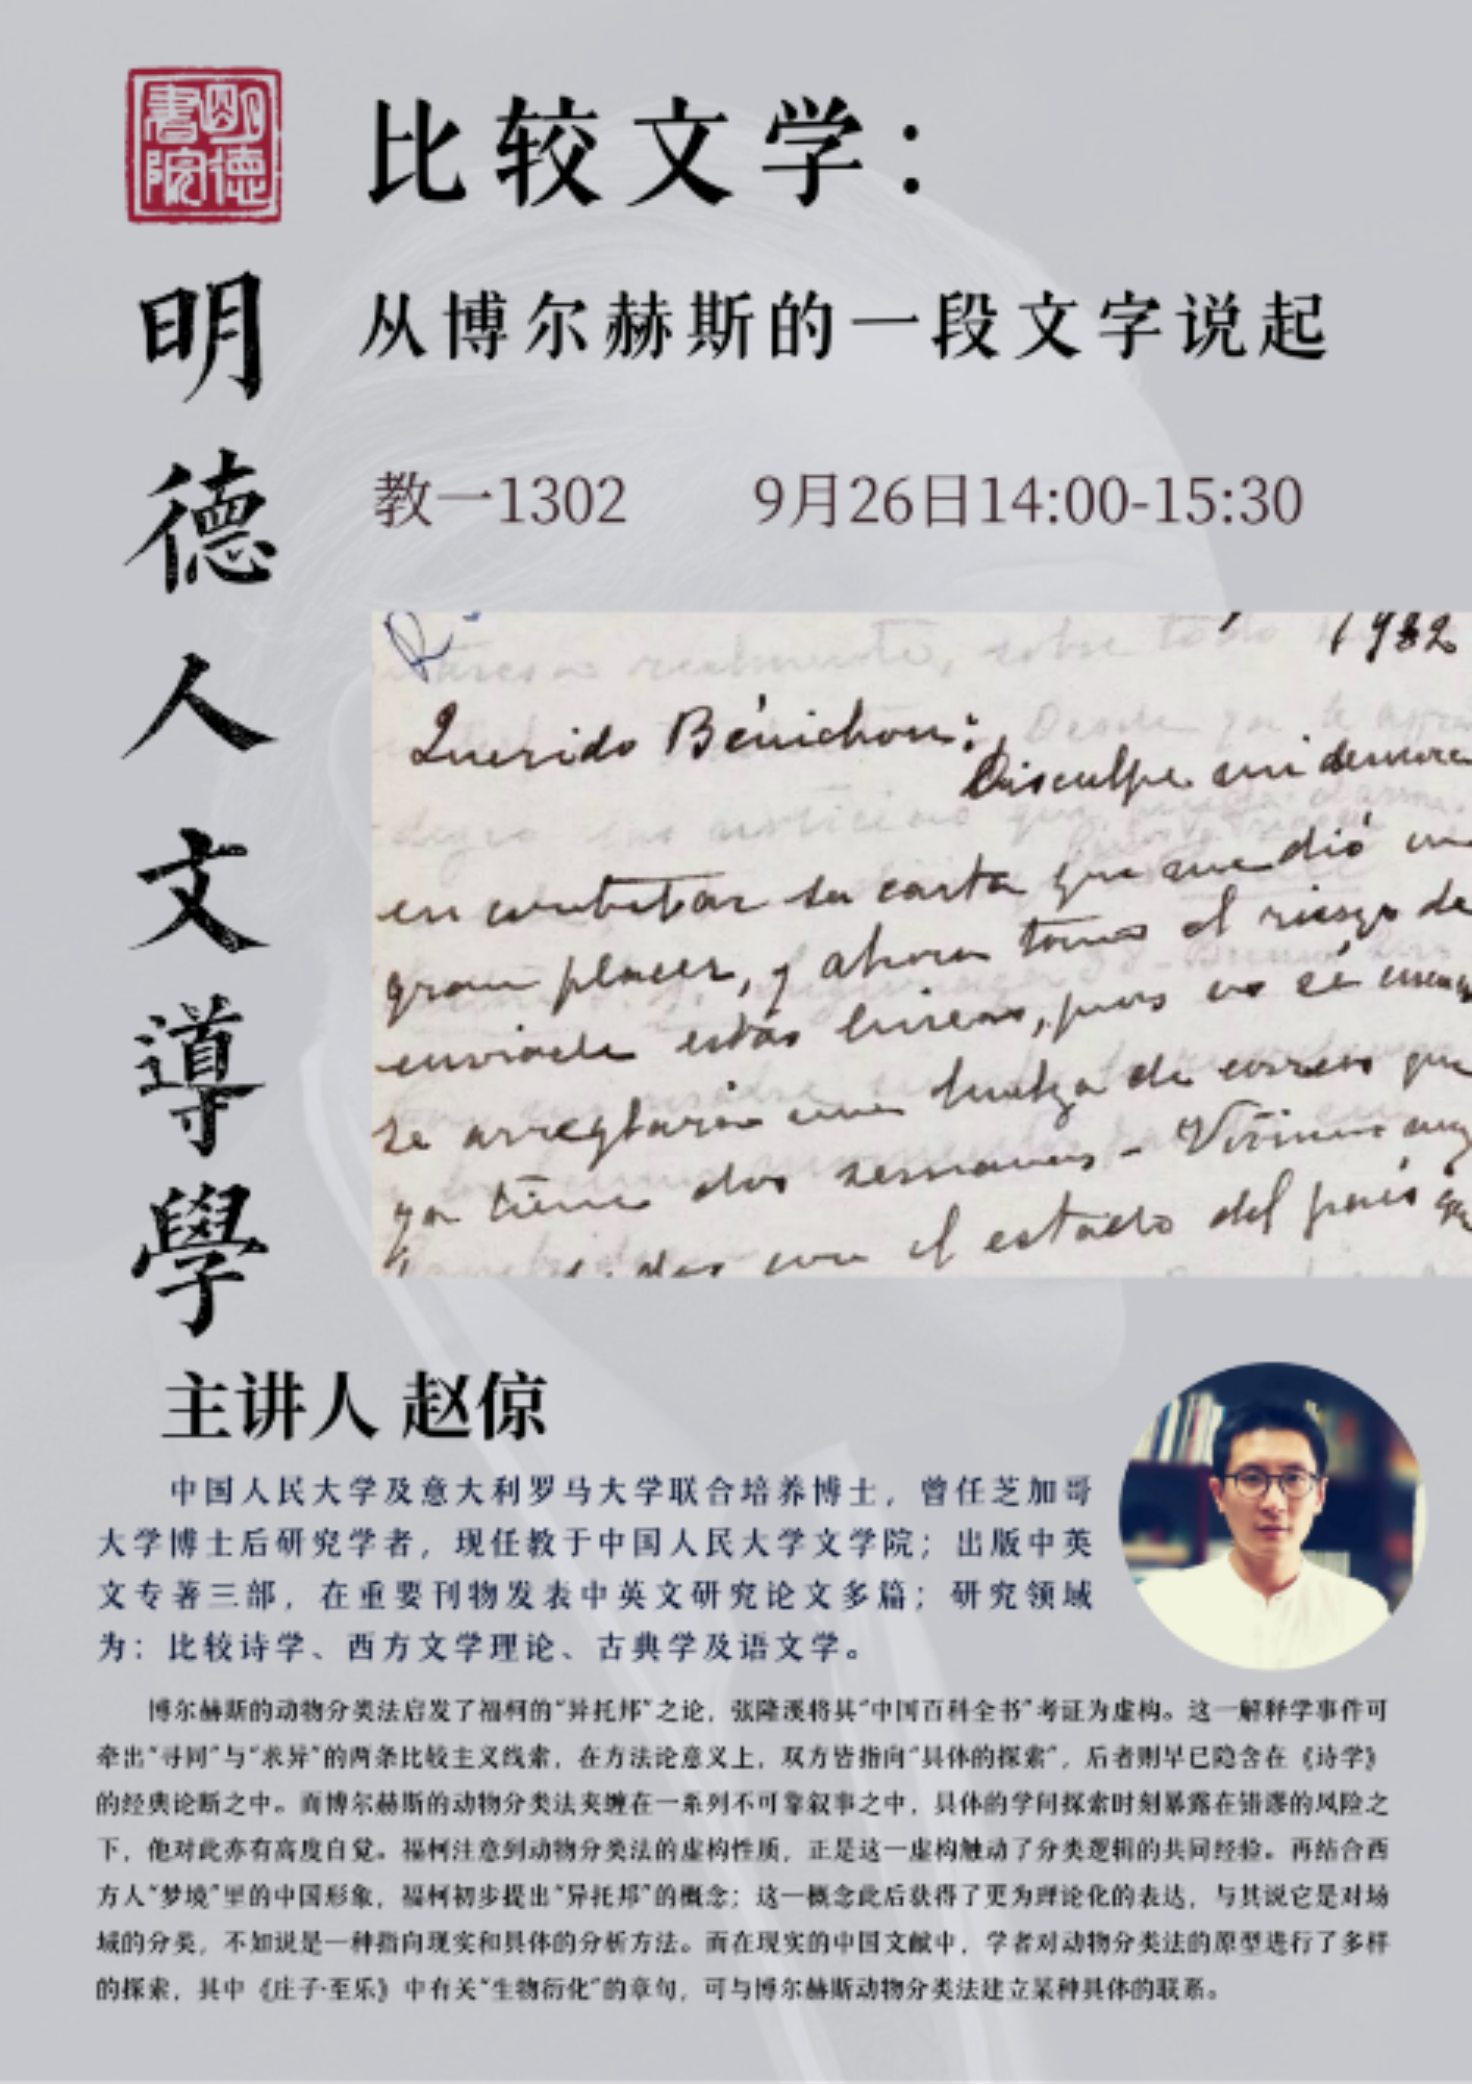 明德書院
比较文学：
从博尔赫斯的一段文字说起
教一1302 9月26日14:00-15:30
明德人文導學
1982
Querido Bénichou:
Disculpe mi demora
en contestar su carta que me dió un
gran placer, y ahora tomo el riesgo de
enviarle estas líneas, pues no sé cuando
se arreglará una huelga de correos que
ya tiene dos semanas - Vivimos muy
con el estado del país
主讲人 赵倞
中国人民大学及意大利罗马大学联合培养博士，曾任芝加哥
大学博士后研究学者，现任教于中国人民大学文学院；出版中英
文专著三部，在重要刊物发表中英文研究论文多篇；研究领域
为：比较诗学、西方文学理论、古典学及语文学。
博尔赫斯的动物分类法启发了福柯的“异托邦”之论，张隆溪将其“中国百科全书”考证为虚构。这一解释学事件可
牵出“寻同”与“求异”的两条比较主义线索，在方法论意义上，双方皆指向“具体的探索”，后者则早已隐含在《诗学》
的经典论断之中。而博尔赫斯的动物分类法夹缠在一系列不可靠叙事之中，具体的学问探索时刻暴露在错谬的风险之
下，他对此亦有高度自觉。福柯注意到动物分类法的虚构性质，正是这一虚构触动了分类逻辑的共同经验。再结合西
方人“梦境”里的中国形象，福柯初步提出“异托邦”的概念；这一概念此后获得了更为理论化的表达，与其说它是对场
域的分类，不如说是一种指向现实和具体的分析方法。而在现实的中国文献中，学者对动物分类法的原型进行了多样
的探索，其中《庄子·至乐》中有关“生物衍化”的章句，可与博尔赫斯动物分类法建立某种具体的联系。